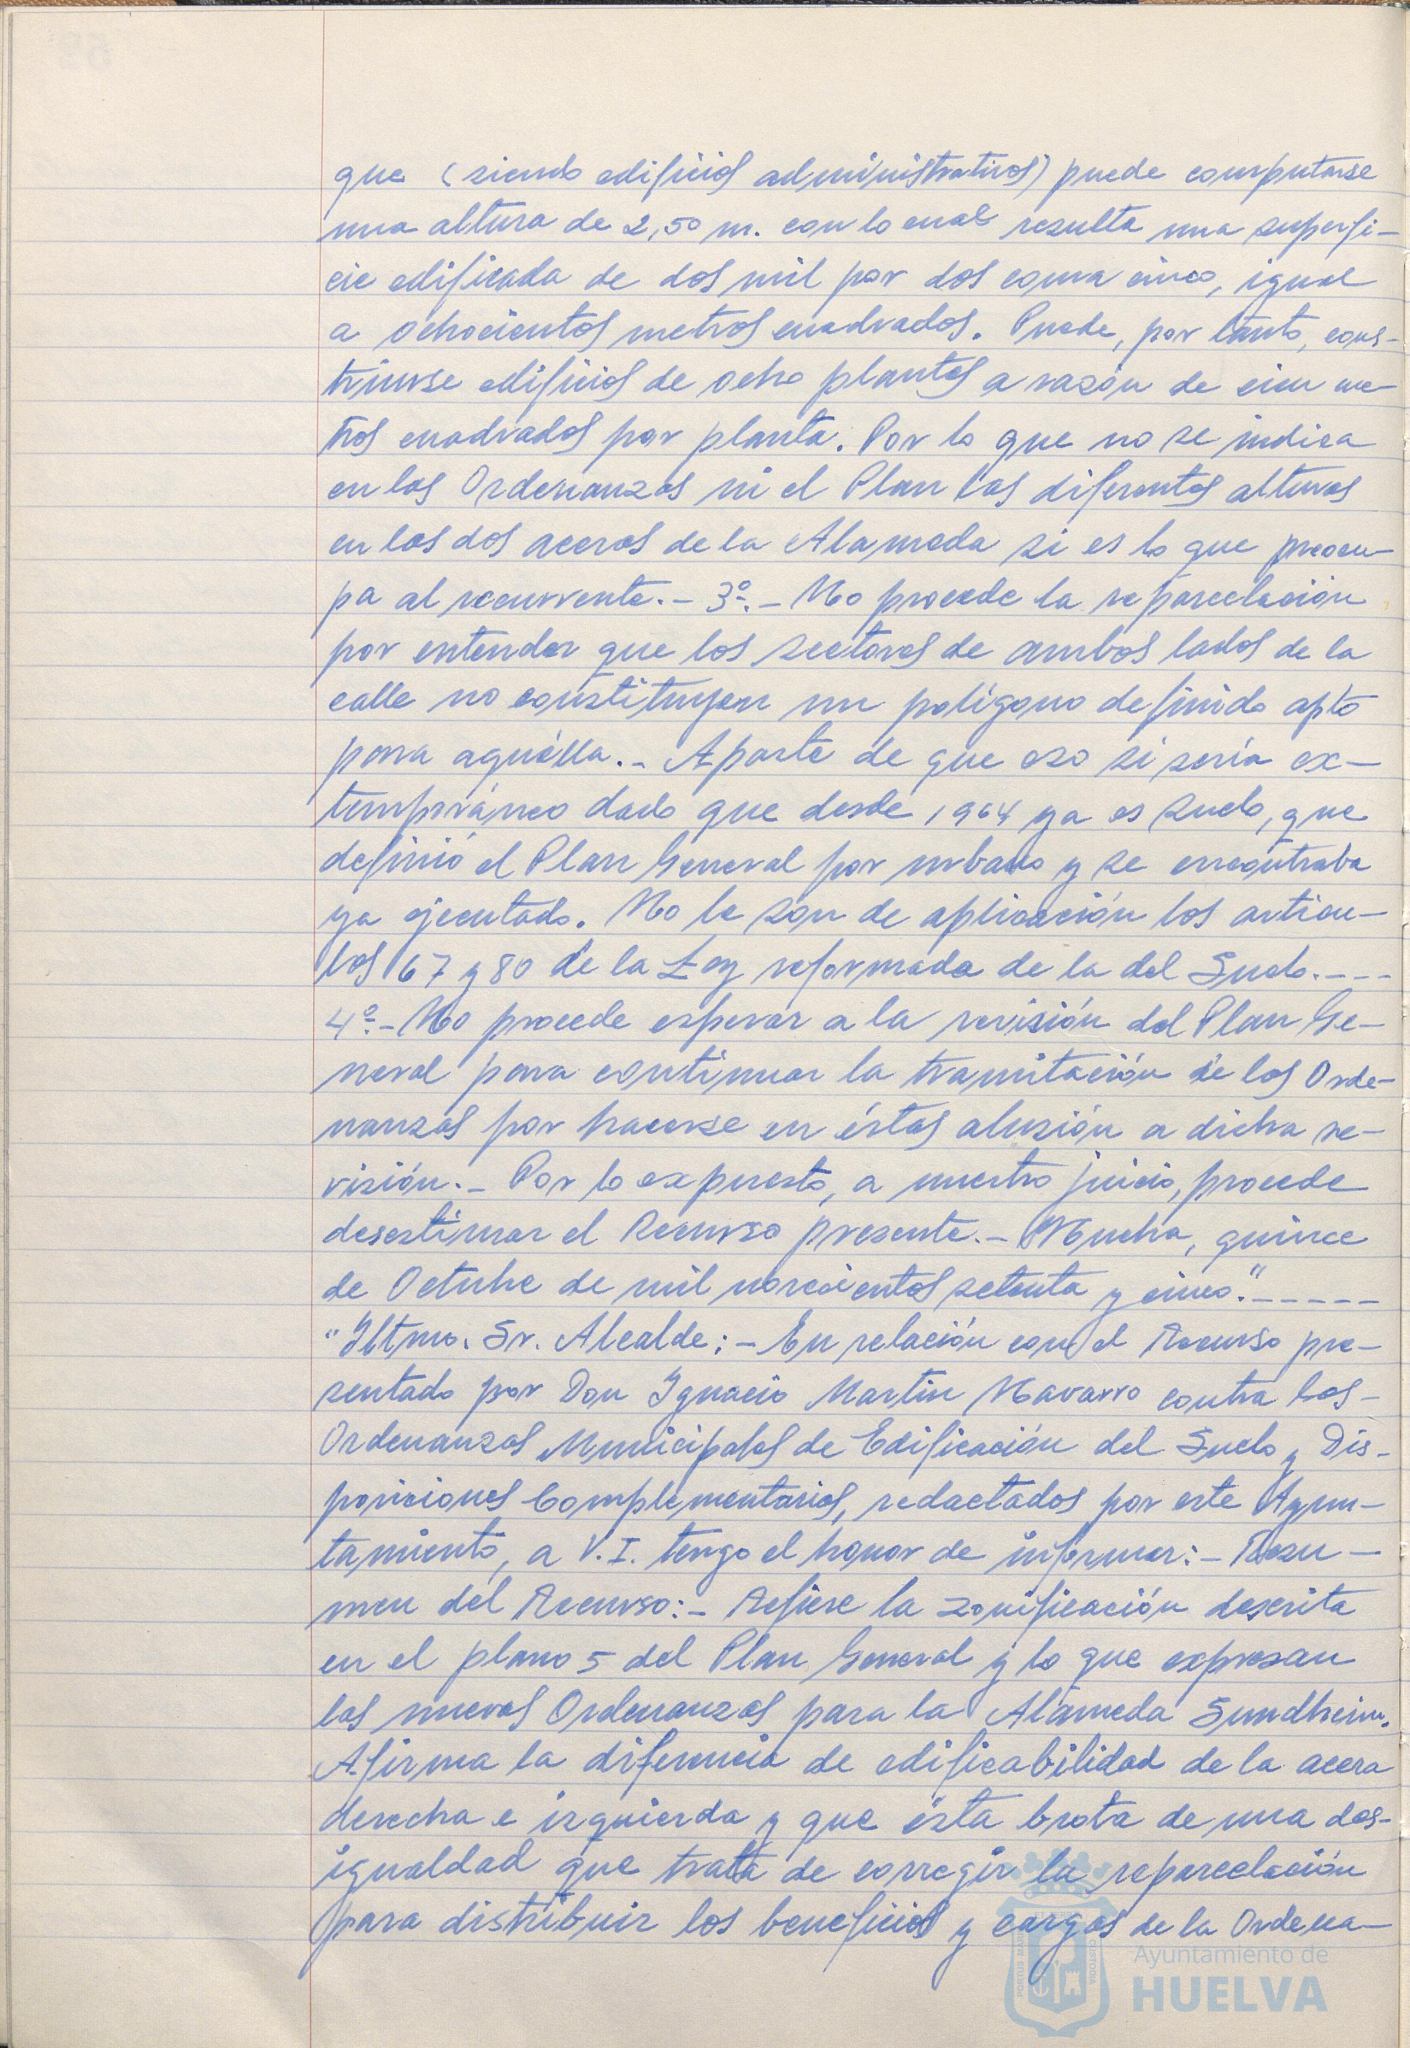 que (siendo edificios administrativos) puede computarse
una altura de 2,50 m. con lo cual resulta una superfi-
cie edificada de dos mil por dos coma cinco, igual
a ochocientos metros cuadrados. Puede, por tanto, cons-
truirse edificios de ocho plantas a razón de cien me-
tros cuadrados por planta. Por lo que no se indica
en las Ordenanzas ni el Plan las diferentes alturas
en las dos aceras de la Alameda si es lo que preocu-
pa al recurrente.- 3º.- No procede la reparcelación
por entender que los sectores de ambos lados de la
calle no constituyen un polígono definido apto
para aquélla.- Aparte de que eso si sería ex-
temporáneo dado que desde 1964 ya es suelo, que
definió el Plan General por urbano y se encontraba
ya ejecutado. No le son de aplicación los artícu-
los 67 y 80 de la Ley reformada de la del Suelo.----
4º.- No procede esperar a la revisión del Plan Ge-
neral para continuar la tramitación de las Orde-
nanzas por hacerse en éstas alusión a dicha re-
visión.- Por lo expuesto, a nuestro juicio, procede
desestimar el Recurso presente.- Huelva, quince
de Octubre de mil novecientos setenta y cinco."-----
"Iltmo. Sr. Alcalde:- En relación con el Recurso pre-
sentado por Don Ignacio Martin Navarro contra las-
Ordenanzas Municipales de Edificación del Suelo y Dis-
posiciones Complementarias, redactados por este Ayun-
tamiento, a V.I. tengo el honor de informar:- Resu-
men del Recurso:- Refiere la zonificación descrita
en el plano 5 del Plan General y lo que expresan
las nuevas Ordenanzas para la Alameda Sundheim.
Afirma la diferencia de edificabilidad de la acera
derecha e izquierda y que ésta brota de una des-
igualdad que trata de corregir la reparcelación
para distribuir los beneficios y cargas de la Ordena-
Ayuntamiento de
HUELVA